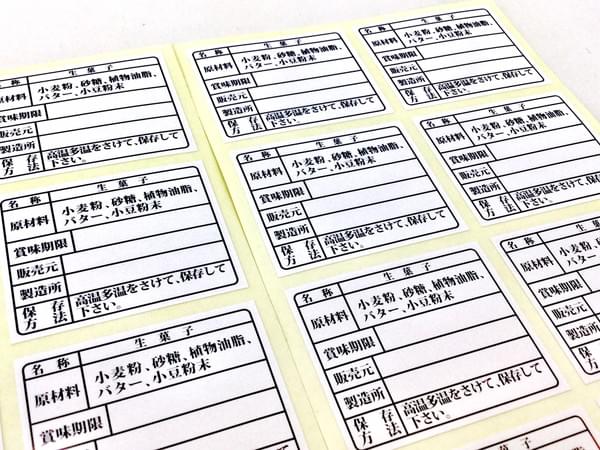 名 称 生 菓 子
原材料 小麦粉、砂糖、植物油脂、
バター、小豆粉末
賞味期限
販売元
製造所
保 存 高温多温をさけて、保存して
方 法 下さい。
名 称 生 菓 子
原材料 小麦粉、砂糖、植物油脂、
バター、小豆粉末
賞味期限
販売元
製造所
保 存 高温多温をさけて、保存して
方 法 下さい。
名 称 生 菓 子
原材料 小麦粉、砂糖、植物油脂、
バター、小豆粉末
賞味期限
名 称 生 菓 子
原材料 小麦粉、砂糖、植物油脂、
バター、小豆粉末
賞味期限
販売元
製造所
保 存 高温多温をさけて、保存して
方 法 下さい。
名 称 生 菓 子
原材料 小麦粉、砂糖、植物油脂、
バター、小豆粉末
賞味期限
販売元
製造所
保 存 高温多温をさけて、保存して
方 法 下さい。
名 称 生 菓 子
原材料 小麦粉、砂糖、植物油脂、
バター、小豆粉末
賞味期限
販売元
製造所
保 存 高温多温をさけて、保存して
方 法 下さい。
名 称 生 菓 子
原材料 小麦粉、砂糖、植物油脂、
バター、小豆粉末
賞味期限
販売元
製造所
保 存 高温多温をさけて、保存して
方 法 下さい。
名 称 生 菓 子
原材料 小麦粉、砂糖、植物油脂、
バター、小豆粉末
賞味期限
販売元
製造所
保 存 高温多温をさけて、保存して
方 法 下さい。
名 称 生
原材料 小麦粉、砂糖
バター、小
賞味期限
販売元
製造所
保 存 高温多
方 法 下さい。
生 菓 子